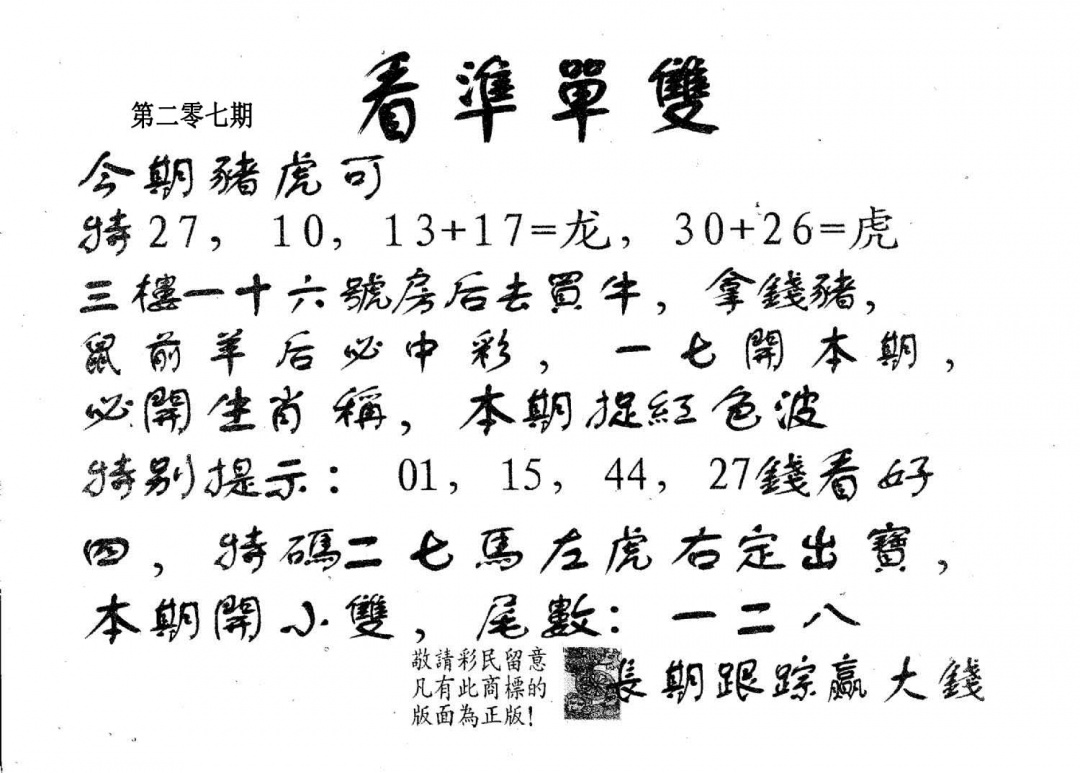 看準單雙
第二零七期
今期豬虎可
特27，10，13+17=龙，30+26=虎
三樓一十六號房后去買牛，拿錢豬，
鼠前羊后必中彩，一七開本期，
必開生肖稱，本期捉紅色波
特別提示：01，15，44，27錢看好
四，特碼二七馬左虎右定出寶，
本期開小雙，尾數：一二八
敬請彩民留意
凡有此商標的
版面為正版！
長期跟踪贏大錢